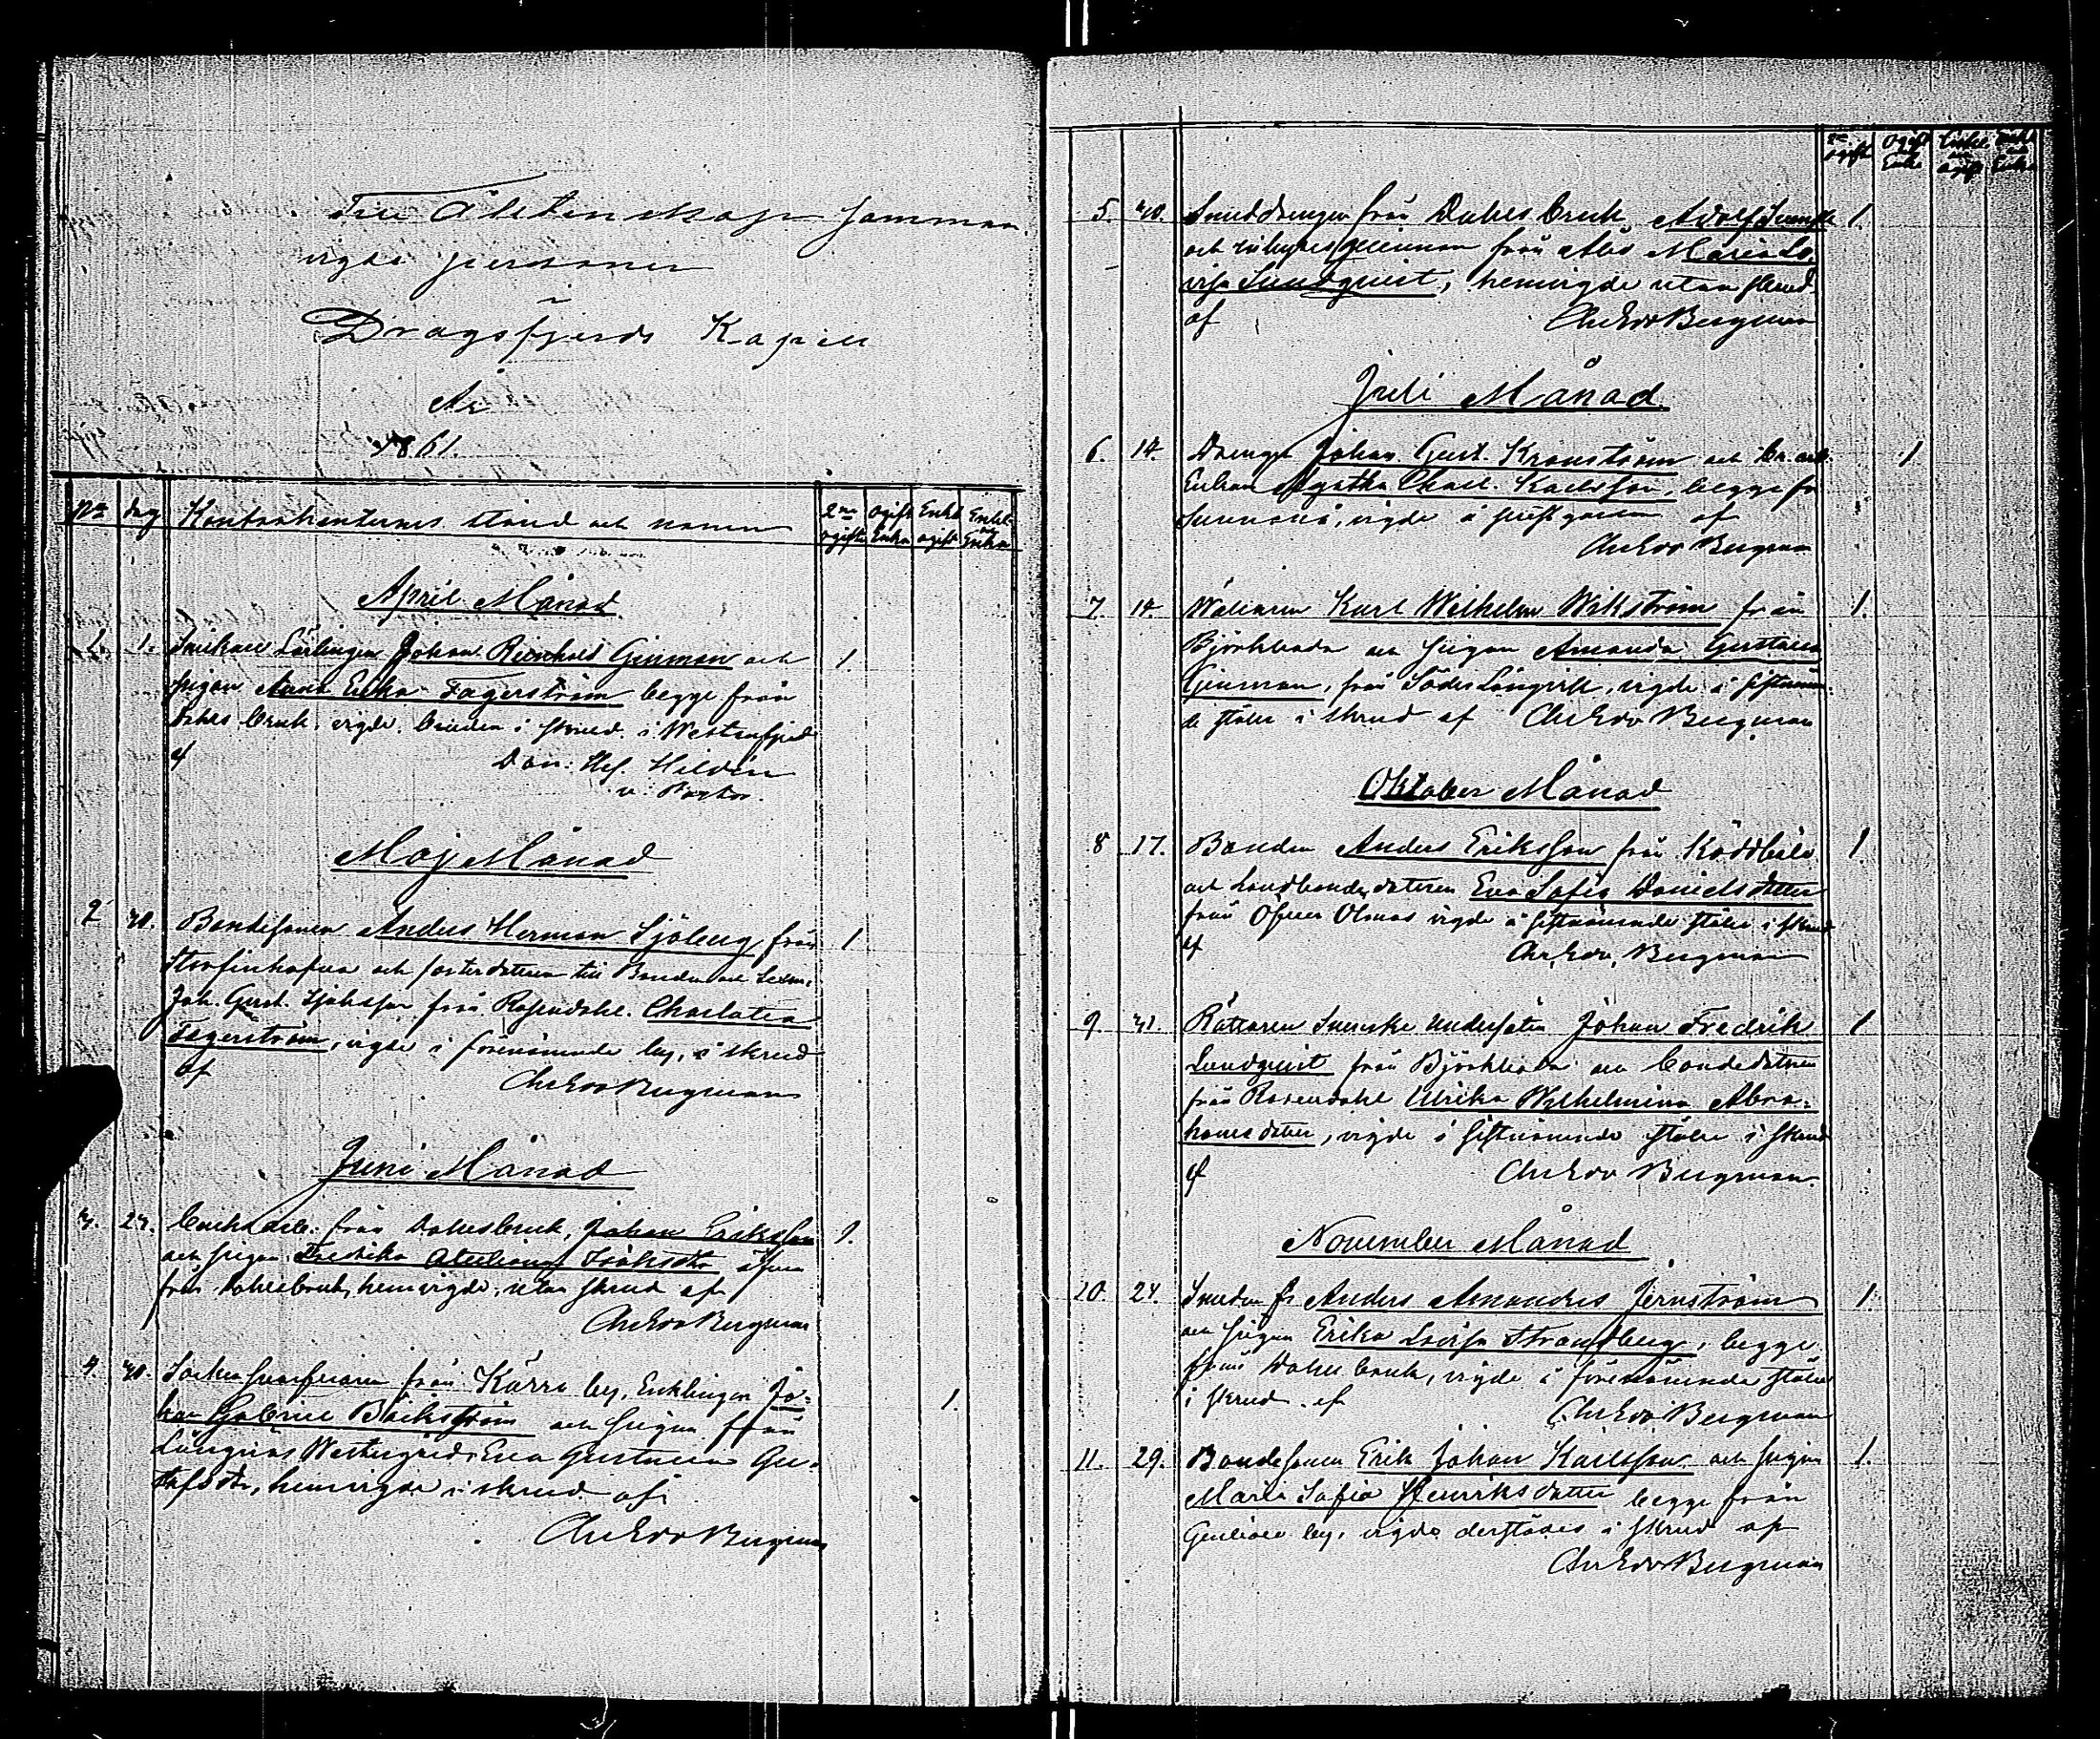 Till Äktenskap samman
vigde personer
i
Dragsfjerds Kapell
År
1861.
No dag Kontrahenternes stånd och namn 2ne ogifte ogift Enka Enkl ogift Enkl. Enka
April Månad
1. 1. Snickare Lärlingen Johan Reinhold Ginman och 1
pigan Anna Erika Fagerström begge från
Dahls bruk, vigde, bruden i skrud, i Westanfjerd
af Dan. Hildén
v. Pastor.
Maj Månad
2 Bondesonen Anders Herman Sjöberg från 1
och fosterdottren till Bonden och
Joh. Gust. från Rosendahl Charlotta
Fagerström, vigde i förenämnde by, i skrud
af Chr Edv Bergman
Juni Månad
3. 24. från Dahlsbruk, Johan Eriksson 1.
och pigan Fredrika äfven
från Dahlsbruk, hemvigde, utan skrud af
Chr Edv Bergman
4 Sockenskräddaren från Kärra by, Enklingen Jo- 1.
han Gabriel Bäckström och pigan från
Långnäs Westergård Eva Gustava Gu-
stafsdtr, hemvigde i skrud af
Chr Edv Bergman
2ne ogifte Ogift Enka Enkl. ogift Enkl Enka
5. Smeddrengen från Dahls bruk, Adolf 1.
och från Åbo Maria Lo-
visa Sundqvist, hemvigde utan skrud
af Chr Edv Bergman
Juli Månad
6. 14. Drengen Johan Gust. Kronström och 1
Enkan Agatha Karlsson, begge fr
vigde å prestgården af
Chr Edv Bergman
7. 14. Karl Wilhelm Wikström från 1.
Björkboda och pigan Amanda Gustava
Ginman, från Söder Långvik, vigde å sistnämn-
de ställe i skrud af Chr Edv Bergman
Oktober Månad
8 17. Bonden Anders Eriksson från Kåddböle 1.
och Landbondedotren Eva Sofia Danielsdotter
från Öfver Ölmos vigde å sistnämnde ställe i skrud
af Chr. Edv. Bergman
9. 31. Rättaren Svenske Undersåten Johan Fredrik 1
Lundqvist från Björkboda och bondedotren
från Rosendahl Ulrika Wilhelmina Abra-
hamsdotter, vigde å sistnämnde ställe i skrud
af Chr Edv Bergman.
November Månad
10. 24. Smeden Anders Amandus Jernström 1.
och pigan Erika Lovisa Strandberg, begge
från Dahls bruk, vigde å förenämnde ställe
i skrud af Chr Edv Bergman
11. 29. Bondesonen Erik Johan Karlsson och pigan 1.
Maria Sofia Henriksdotter begge från
by, vigde derstädes i skrud af
Chr Edv Bergman